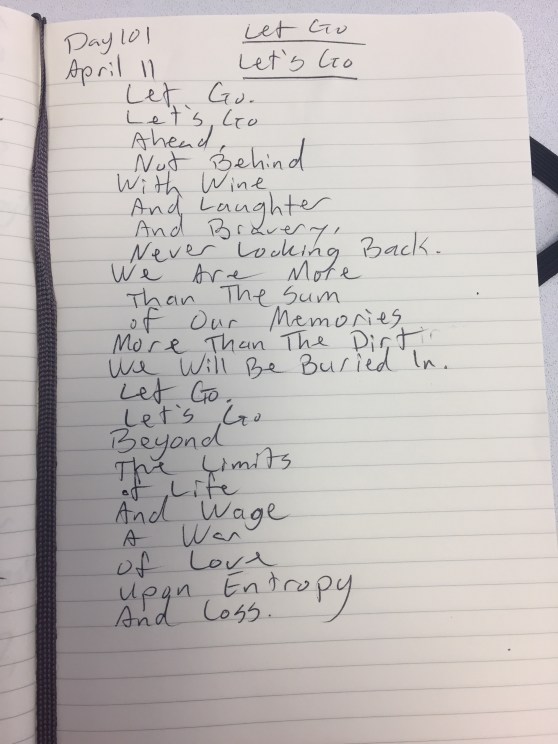 Day 101
April 11
Let Go
Let's Go
Let Go.
Let's Go
Ahead,
Not Behind
With Wine
And Laughter
And Bravery,
Never Looking Back.
We Are More
Than The Sum
of Our Memories
More Than The Dirt
We Will Be Buried In.
Let Go.
Let's Go
Beyond
The Limits
of Life
And Wage
A War
of Love
Upon Entropy
And Loss.